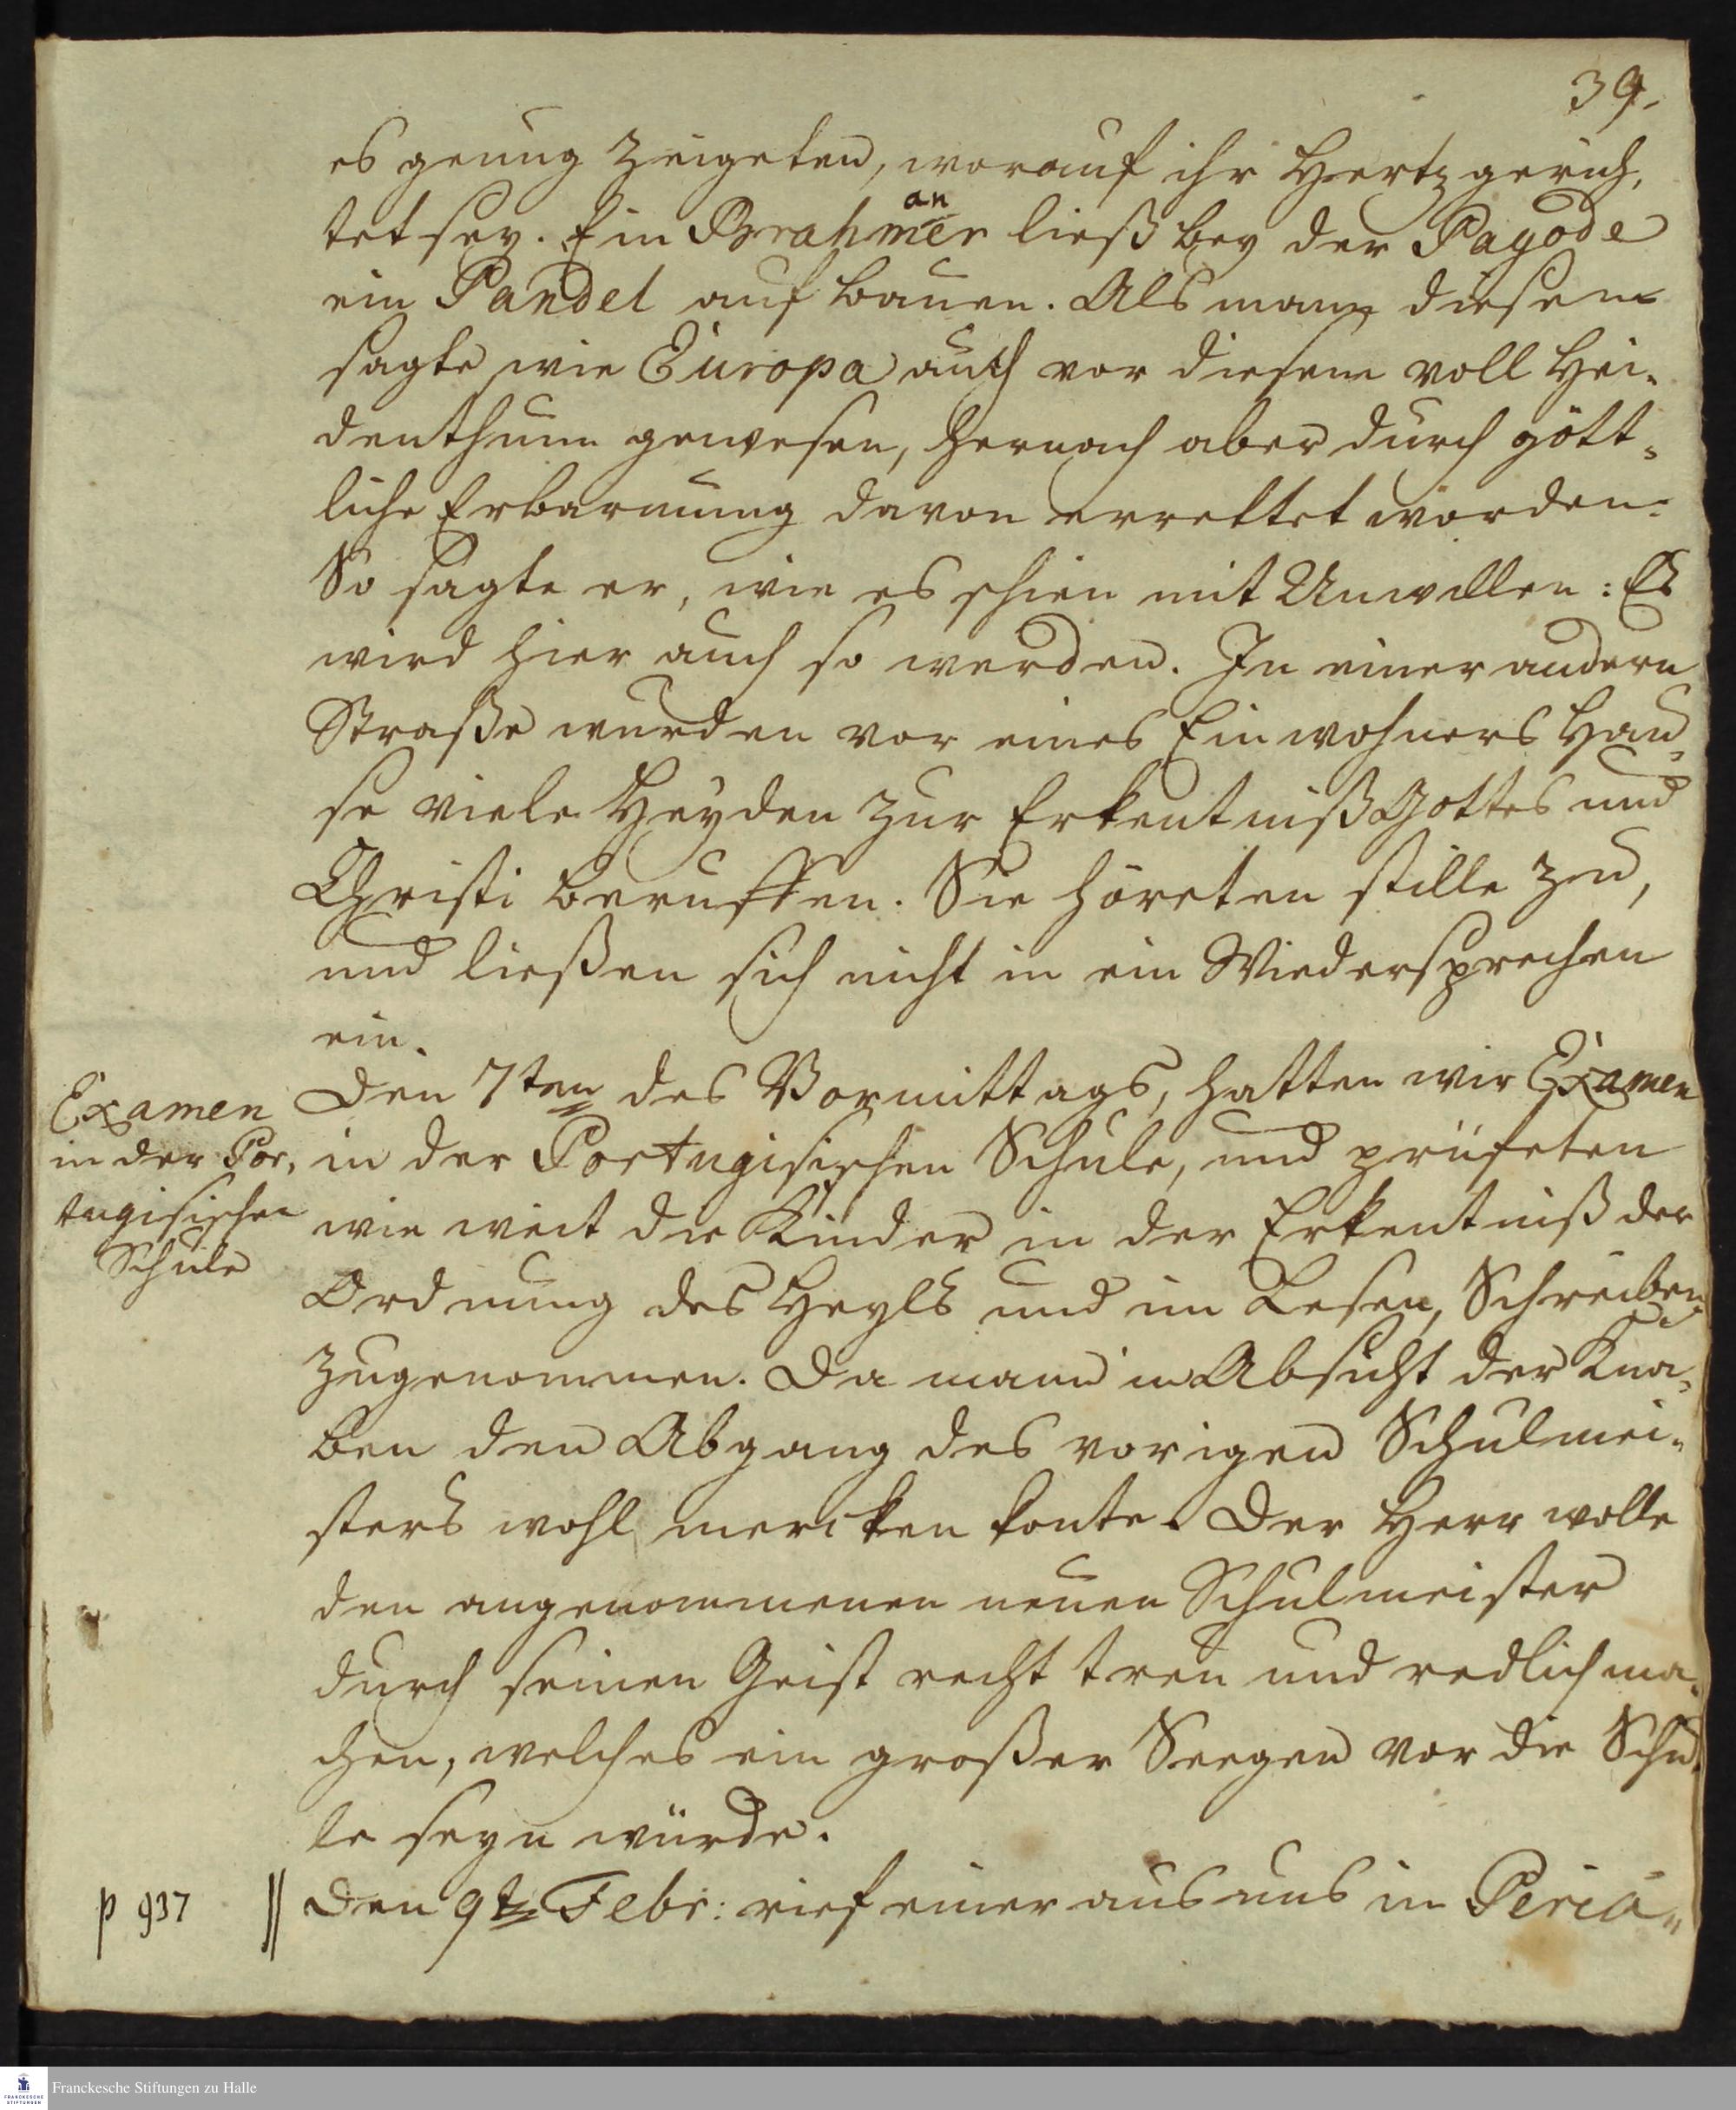 39.
es genung zeigeten, worauf ihr Hertz gerich,
an
tet sey. Ein Brahmer ließ bey der Pagode
ein Pandel auf bauen. Als mann diesem
sagte wie Europa auch vor diesem voll Hei-
denthum gewesen, hernach aber durch gött-
liche Erbarmung davon errettet worden:
So sagte er, wie es schien mit Unwillen: Es
wird hier auch so werden. In einer andern
Straße wurden vor eines Einwohners Hau-
se viele Heyden zur Erkentniß Gottes und
Christi beruffen. Sie höreten stille zu,
und ließen sich nicht in ein Wiedersprechen
ein.
Examen
in der Por,
tugisischen
Schule
Den 7ten des Vormittags, hatten wir Examen
in der Portugisischen Schule, und prüfeten
wie weit die Kinder in der Erkentniß der
Ordnung des Heyls und im Lesen, Schreiben
zugenommen. Da mann in Absicht der Kna-
ben den Abgang des vorigen Schulmei-
sters wohl mercken konte. Der Herr wolle
den angenommenen neuen Schulmeister
durch seinen Geist recht treu und redlich ma-
chen, welches ein großer Seegen vor die Schu-
le seyn würde.
p 937
|| Den 9t Febr: rief einer aus uns in Peria-
Franckesche Stiftungen zu Halle
FRANCKESCHE
STIFTUNGEN